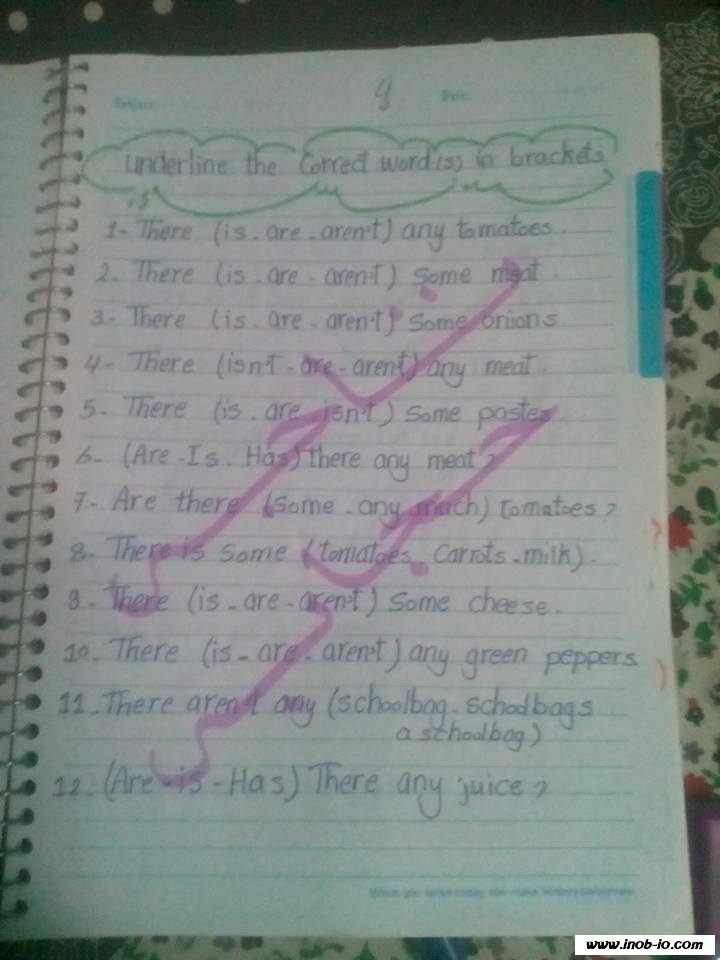 4
Subject:
Date:
underline the Correct word(s) in brackets
1- There (is - are - aren't) any tomatoes.
2- There (is - are - aren't) Some meat.
3- There (is - are - aren't) Some onions.
4- There (isn't - are - aren't) any meat.
5- There (is - are isn't) Some pastes
6- (Are - Is - Has) there any meat?
7- Are there (Some - any much) tomatoes?
8- There is Some (tomatoes - Carrots - milk).
9- There (is - are - aren't) Some cheese.
10- There (is - are - aren't) any green peppers
11- There aren't any (schoolbag - schoolbags
a schoolbag)
12- (Are - is - Has) There any juice?
www.inob-io.com